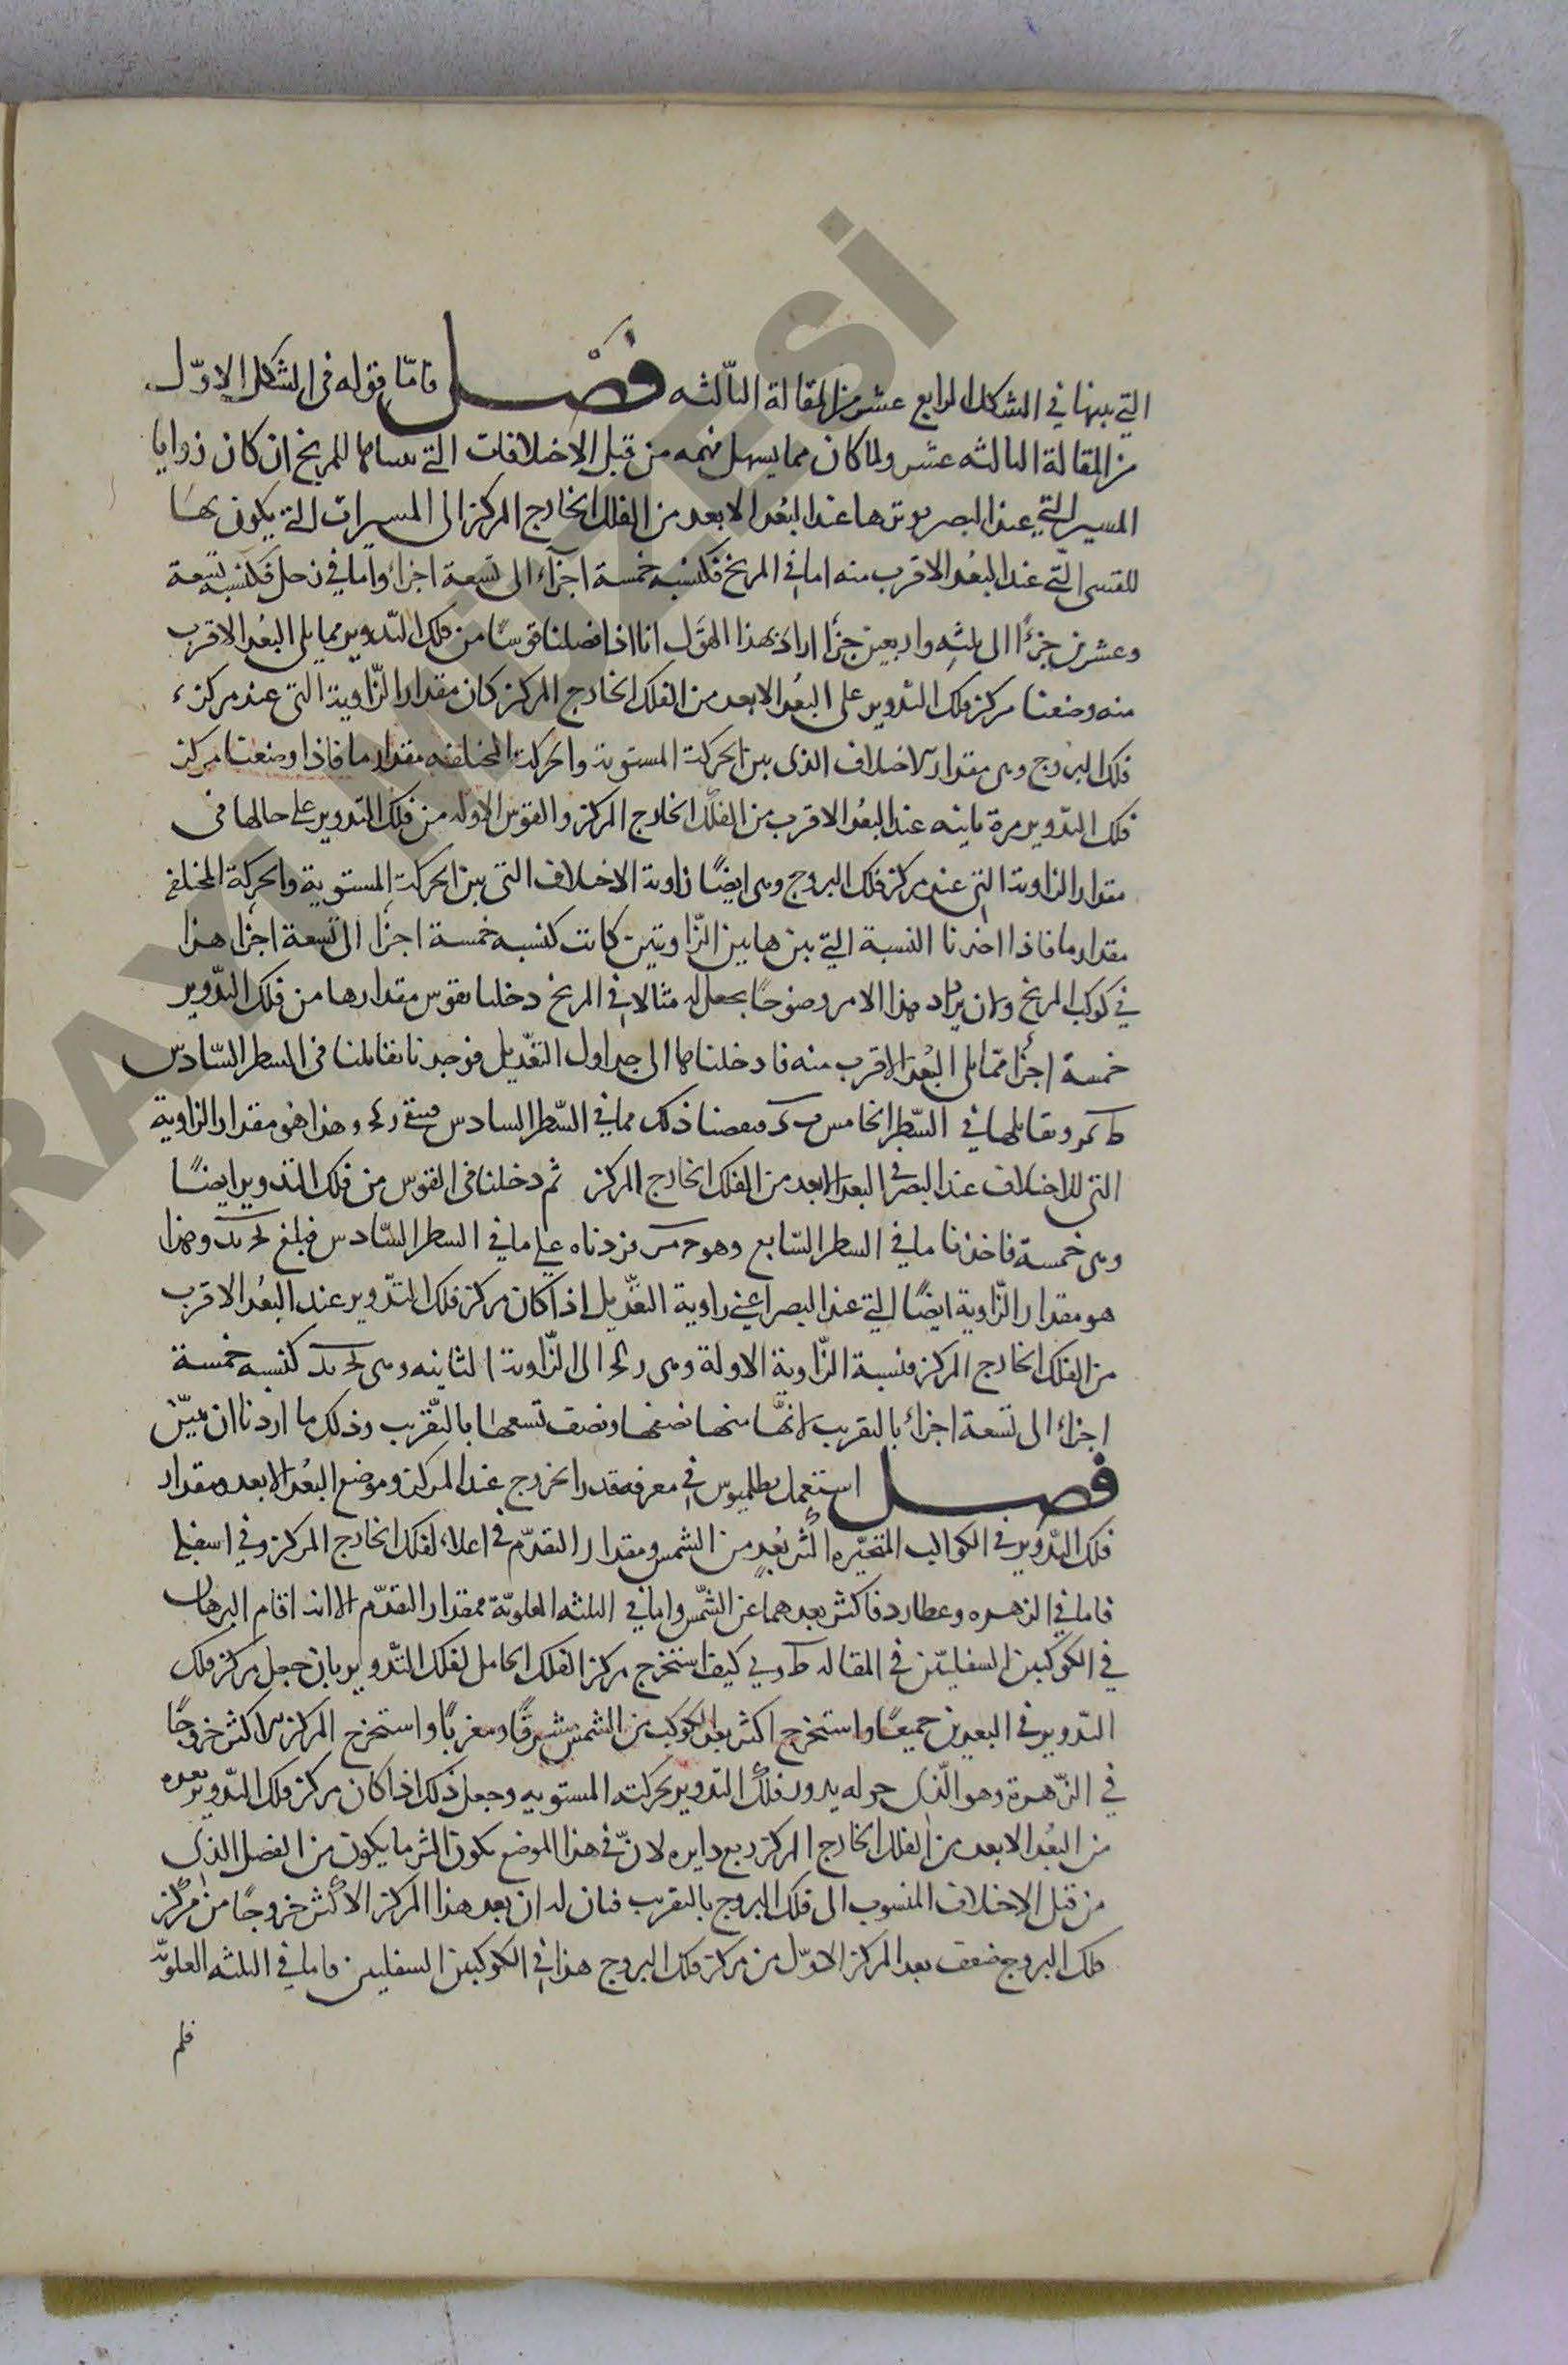 التي بينها في الشكل الرابع عشر من المقالة الثالثه فصل فامّا قوله فى الشكل الاوّل
من المقالة الثالثه عشر ولما كان مما يسهل فهمه من قبل الاختلافات التي للمريخ ان كان زوايا
المسير التي عند البصر يوترها عند البعُد الابعد من الفلك الخارج المركز الى المسيرات التي يكون بها
للقسى التّي عند البعُد الاقرب منه اما في المريخ فكنسبه خمسة اجزآء الى تسعة اجزاء واما في زحل فكنسبه تسعة
وعشرين جزءًا الى ثلثه واربعين جزءًا اراد بهذا القول انا اذا فصلنا قوسًا من فلك التّدوير مما يلى البعُد الاقرب
منه وضعنا مركز فلك التدوير على البعُد الابعد من الفلك الخارج المركز كان مقدار الزّاوية التى عند مركز
فلك البروج وهى مقدار الاختلاف الذى بين الحركت المستوية والحركت المختلفه مقدار ما فاذا وضعنا مركز
فلك التدوير مرة ثانيه عند البعُد الاقرب من الفلك الخارج المركز والقوس الاوله من فلك التدوير على حالها فى
مقدار الزاوية التى عند مركز فلك البروج وهى ايضًا زاوية الاختلاف التى بين الحركت المستوية والحركة المختلفه
مقدار ما فاذا اخذنا النسبة التي بين هاتين الزّاويتين كانت كنسبه خمسة اجزا الى تسعة اجزا هذا
في كوكب المريخ ولان يزداد هذا الامر وضوحًا نجعل له مثالا في المريخ دخلنا بقوس مقدارها من فلك التّدوير
خمسة اجزا ممّا يلى البُعد الاقرب منه فادخلناها الى جداول التعّديل فوجدنا تقابلنا فى السطر السّادس
ط كر وتقابلها في السّطر الخامس فنقصنا ذلك مما في السّطر السادس فبقى وهذا هو مقدار الزاوية
التى للاختلاف عند البصر فى البعد الابعد من الفلك الخارج المركز ثم دخلنا فى القوس من فلك التدوير ايضًا
وهى خمسة فاخذنا ما في السطر السّابع وهو فزدناه على ما في السطر السّادس فبلغ وهذا
هو مقدار الزّاوية ايضًا التي عند البصر اعني زاوية التعّديل اذا كان مركز فلك التدّوير عند البعُد الاقرب
من الفلك الخارج المركز فنسبة الزّاوية الاولة وهى الى الزّاوية الثانيه وهى كنسبه خمسة
اجزاء الى تسعة اجزاء بالتقريب لانهّا منها نصفها ونصف تسعها بالتّقريب وذلك ما اردنا ان نبيّن
فصل استعمل بطلميوس في معرفة مقدار الخروج عند المركز وموضع البعُد الابعد ومقدار
فلك التدّوير فى الكواكب المتحيّره اكثر بُعدٍ من الشمس ومقدار التقدّم فى اعلا الفلك الخارج المركز وفي اسفله
فاما في الزهره وعطارد فاكثر بعدهما عن الشّمس واما في الثلثه العلويّة فمقدار التقدّم الا انه اقام البرهان
في الكوكبين السفليّين في المقاله ط وي كيف استخرج مركز الفلك الحامل لفلك التدّوير بان جعل مركز فلك
التدوير فى البعدين جميعًا واستخرج اكثر بعد الكوكب من الشمس شرقًا ومغربًا واستخرج المركز الاكثر خروجًا
في الزّهرة وهو الذّى حوله يدور فلك التدوير بحركته المستويه وجعل ذلك اذا كان مركز فلك التدّوير بعده
من البعُد الابعد من الفلك الخارج المركز ربع دايره لانّ فى هذا الموضع يكون اكثر ما يكون من الفضل الذى
من قبل الاختلاف المنسوب الى فلك البروج بالتقريب فبان له ان بعد هذا المركز الاكثر خروجًا من مركز
فلك البروج ضعف بعد المركز الاوّل من مركز فلك البروج هذا في الكوكبين السفليين فاما في الثلثه العلويّه
فلم